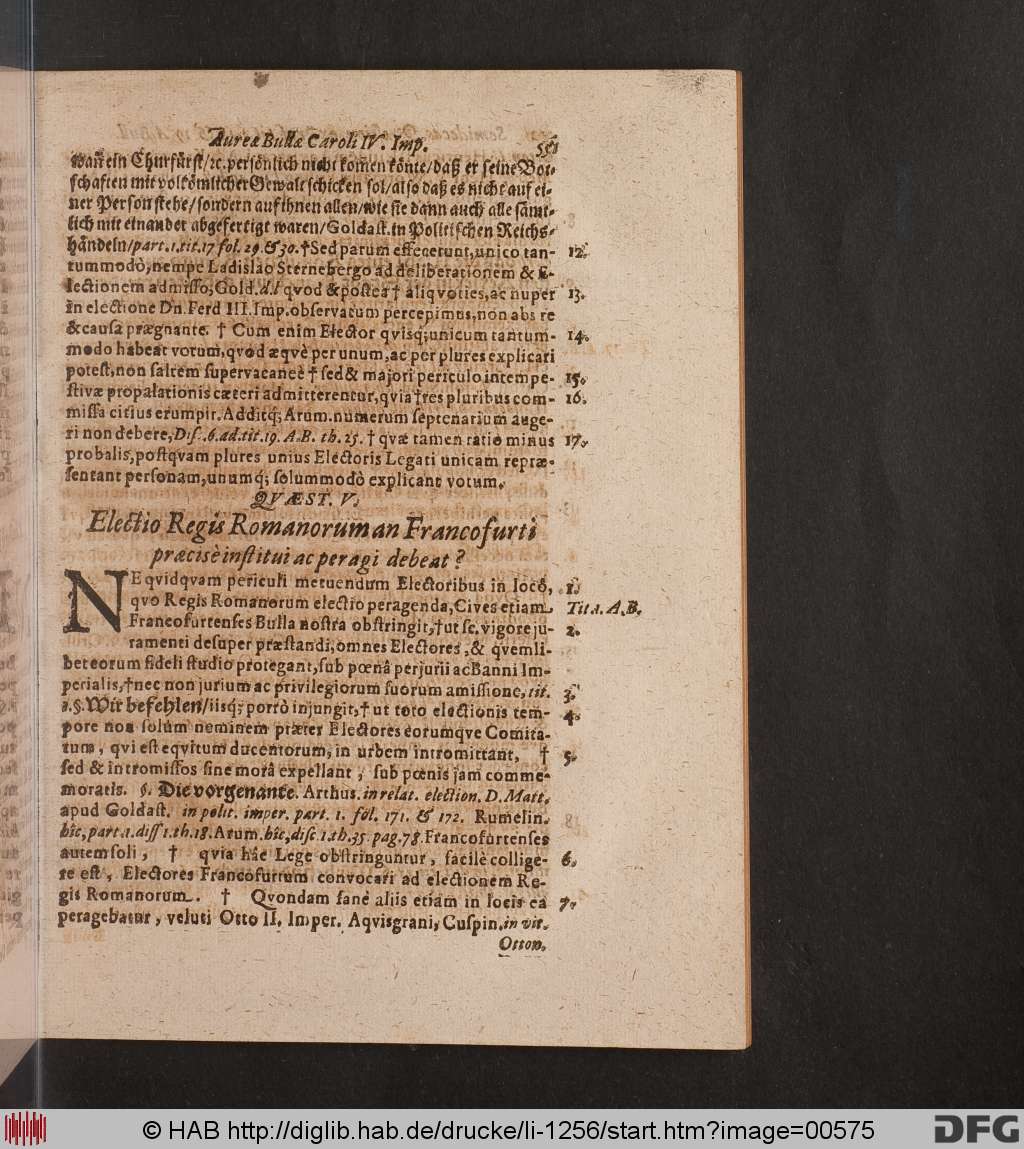 Aureæ Bullæ Caroli IV. Imp. 551
wañ ein Churfürst/ꝛc. persönlich nicht komen könte/daß er seine Bot-
schaften mit volkömlicher Gewalt schicken sol/also daß es nicht auf ei-
ner Person stehe/sondern auf ihnen allen/wie sie dann auch alle sämt-
lich mit einander abgefertigt waren/Goldast. in Politischen Reichs-
händeln/part. 1. tit. 17 fol. 29. & 30. † Sed parum effecerunt, unico tan- 12.
tummodò, nempe Ladislao Sternebergo ad deliberationem & E-
lectionem admisso, Gold. d. l qvod & postea † aliqvoties, ac nuper 13.
in electione Dn. Ferd III. Imp. observatum percepimus, non abs re
& causa prægnante. † Cum enim Elector qvisq; unicum tantum- 14.
modo habeat votum, qvod æqvè per unum, ac per plures explicari
potest, non saltem supervacaneè † sed & majori periculo intempe- 15.
stivæ propalationis cæteri admitterentur, qvia † res pluribus com- 16.
missa citius erumpit. Additq; Arum. numerum septenarium auge-
ri non debere, Dis. 6. ad. tit. 19. A. B. th. 25. † qvæ tamen ratio minus 17.
probalis, postqvam plures unius Electoris Legati unicam repræ-
sentant personam, unumq; solummodò explicant votum.
QVÆST. V.
Electio Regis Romanorum an Francofurti
præcisè institui ac peragi debeat?
NE qvidqvam periculi metuendum Electoribus in loco, 1.
qvo Regis Romanorum electio peragenda, Cives etiam Tit. 1. A. B.
Francofurtenses Bulla nostra obstringit, † ut sc. vigore ju- 2.
ramenti desuper præstandi, omnes Electores, & qvemli-
bet eorum fideli studio protegant, sub pœnâ perjurii ac Banni Im-
perialis, † nec non jurium ac privilegiorum suorum amissione, tit. 3.
1. §. Wir befehlen/iisq; porrò injungit, † ut toto electionis tem- 4.
pore non solùm neminem præter Electores eorumqve Comita-
tum, qvi est eqvitum ducentorum, in urbem intromittant, † 5.
sed & intromissos sine morâ expellant, sub pœnis jam comme-
moratis. §. Die vorgenante. Arthus. in relat. election. D. Matt.
apud Goldast. in polit. imper. part. 1. fol. 171. & 172. Rumelin.
hîc, part. 1. diss 1. th. 18. Arum. hîc, disc 1. th. 35 pag. 78. Francofurtenses
autem soli, † qvia hâc Lege obstringuntur, facilè collige- 6.
re est, Electores Francofurtum convocari ad electionem Re-
gis Romanorum. † Qvondam sanè aliis etiam in locis ea 7.
peragebatur, veluti Otto II. Imper. Aqvisgrani, Cuspin. in vit.
Otton.
© HAB http://diglib.hab.de/drucke/li-1256/start.htm?image=00575
DFG